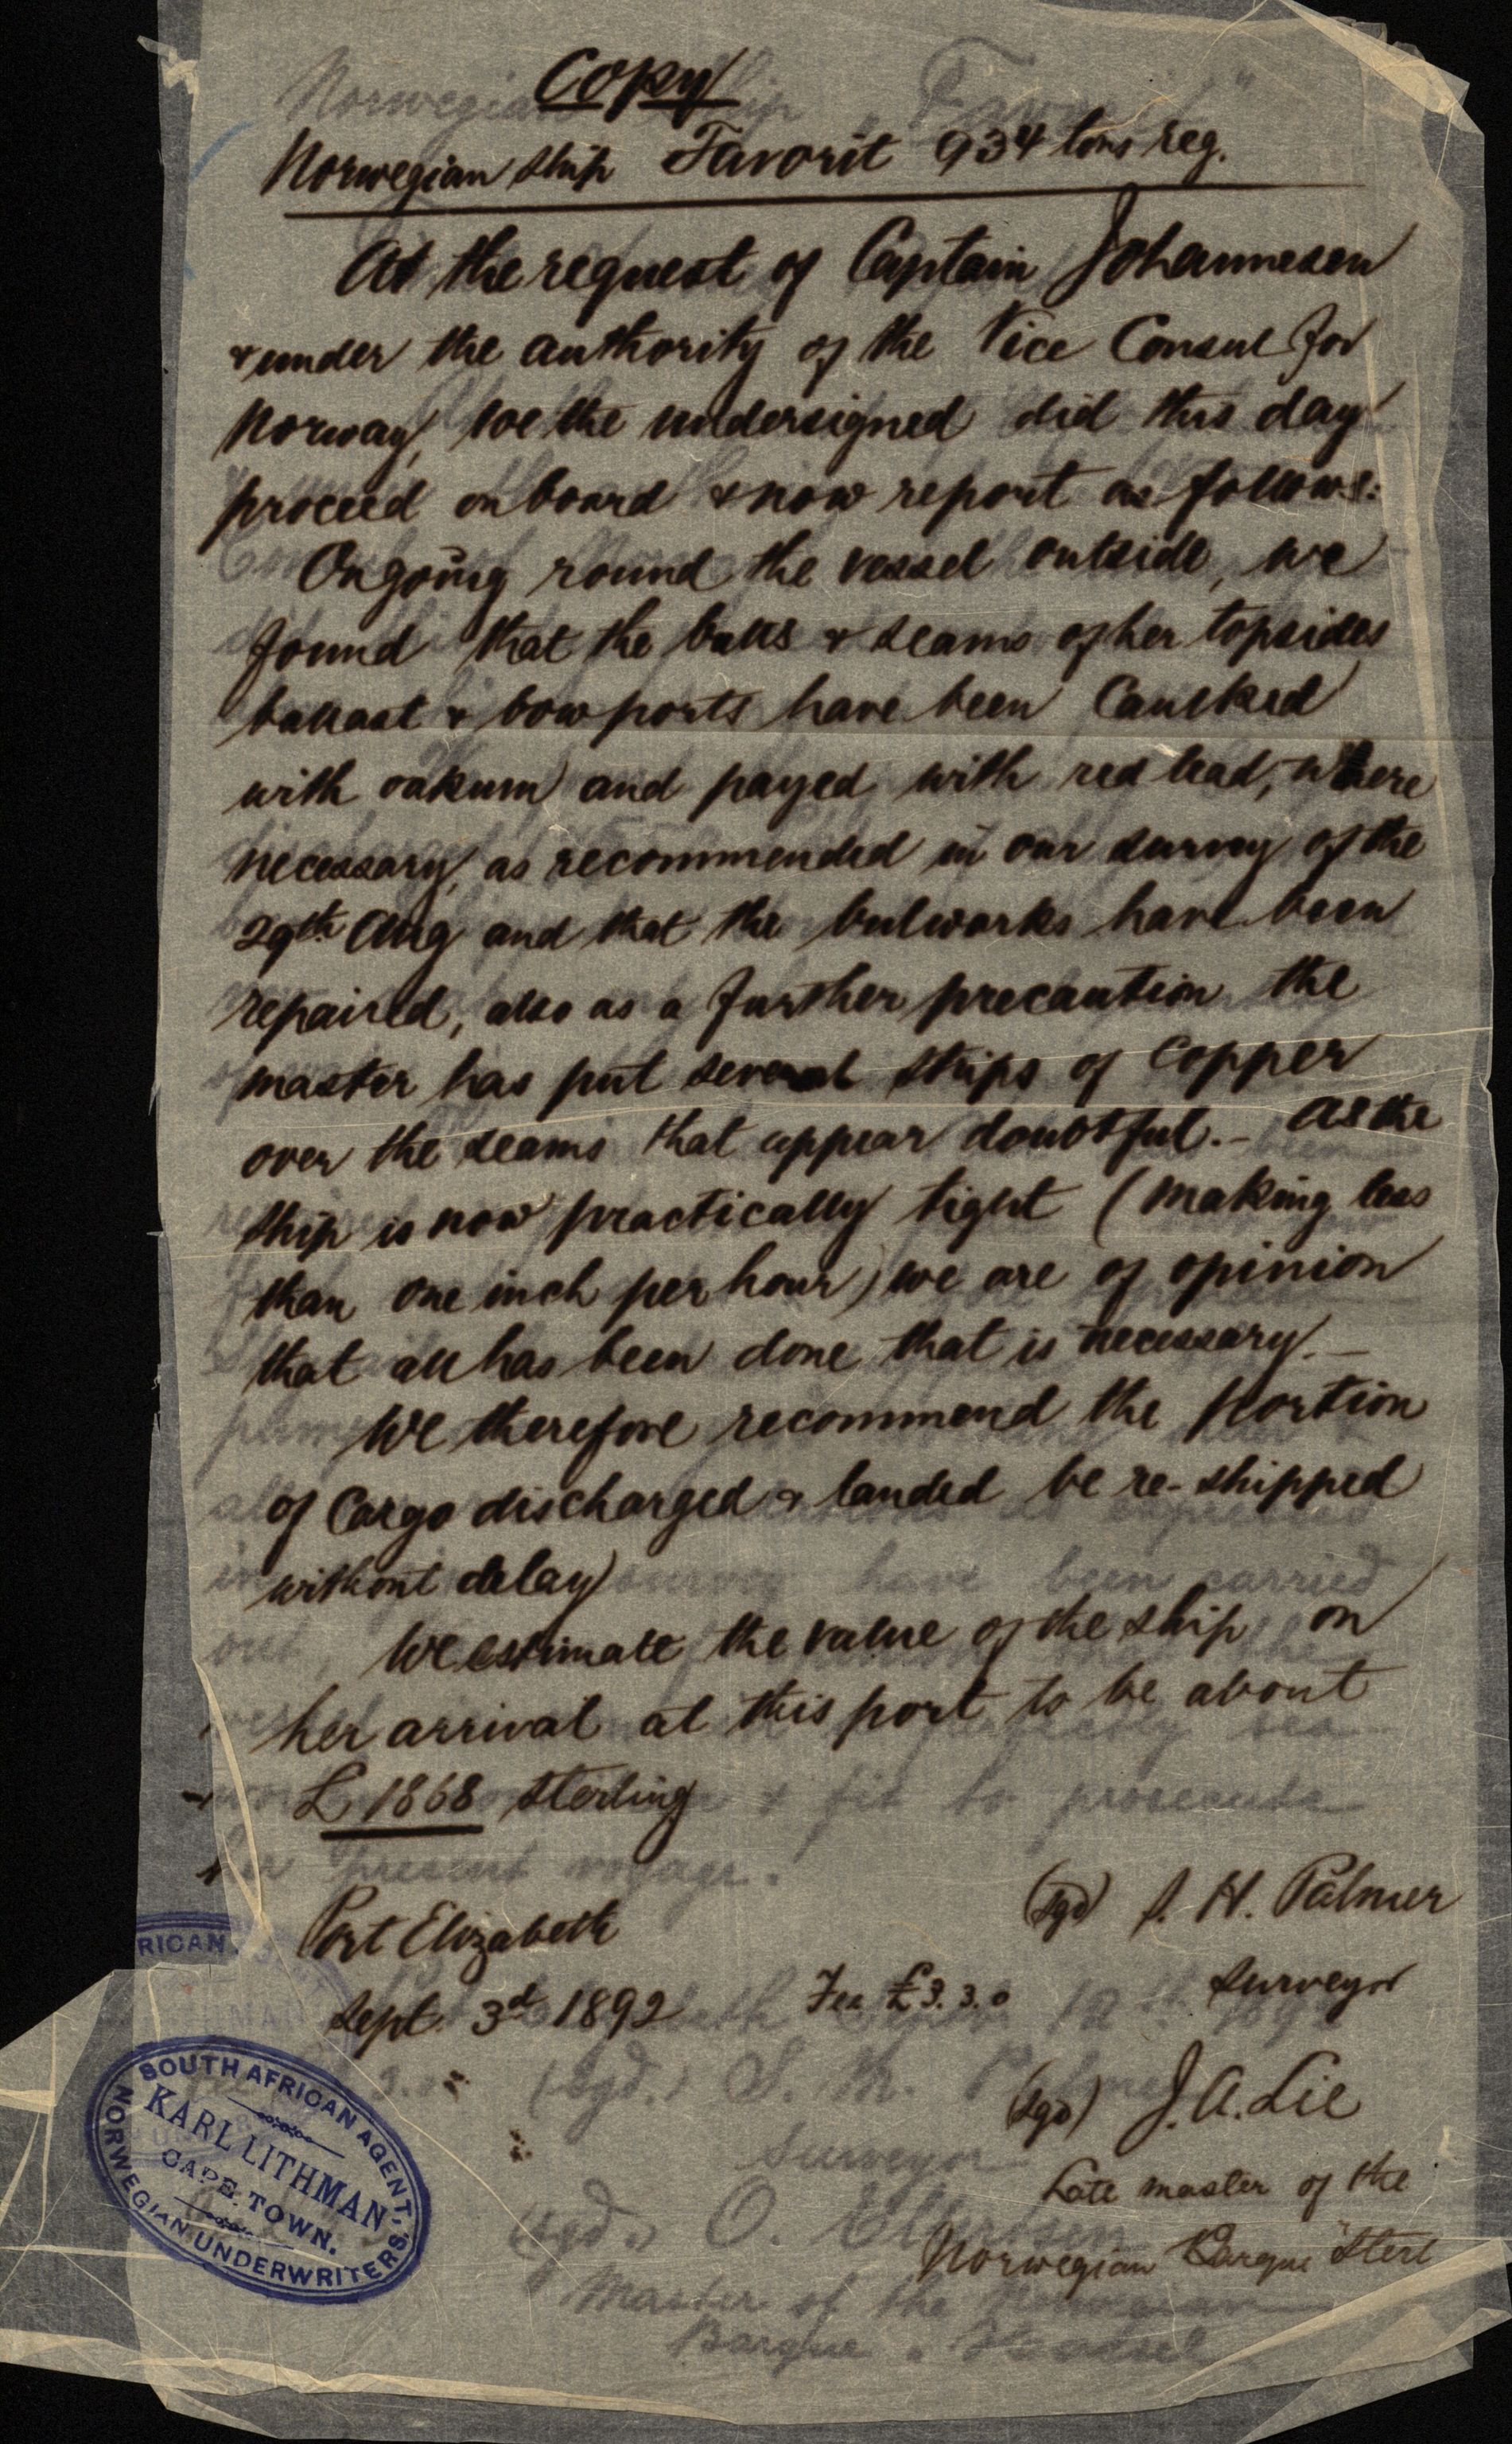 Copy
Norwegian ship Favorit 934 tons reg.
At the request of Captain Johannesen
& under the authority of the Vice Consul for
Norway, we the undersigned did this day
proceed on board & now report as follows:
On going round the vessel outside, we
found that the butts & seams of her topsides
ballast & bow ports have been Caulked
with oakum and payed with red lead, where
necessary, as recommended in our survey of the
29th Aug and that the bulworks have been
repaired, also as a further precaution the
master has put several strips of Copper
over the seams that appear doubtful. - As the
ship is now practically tight (making less
than one inch per hour) we are of opinion
that all has been done that is necessary. -
We therefore recommend the portion
of Cargo discharged & landed be re-shipped
without delay
We estimate the value of the ship on
her arrival at this port to be about
£ 1868 Sterling
(sgd) S. H. Palmer
Port Elizabeth
Surveyor
Sept. 3d 1892 Fee £3.3.0
(sgd) J. A. Lie
Late master of the
Norwegian Barque
SOUTH AFRICAN AGENT.
KARL LITHMAN
CAPE TOWN.
NORWEGIAN UNDERWRITERS.